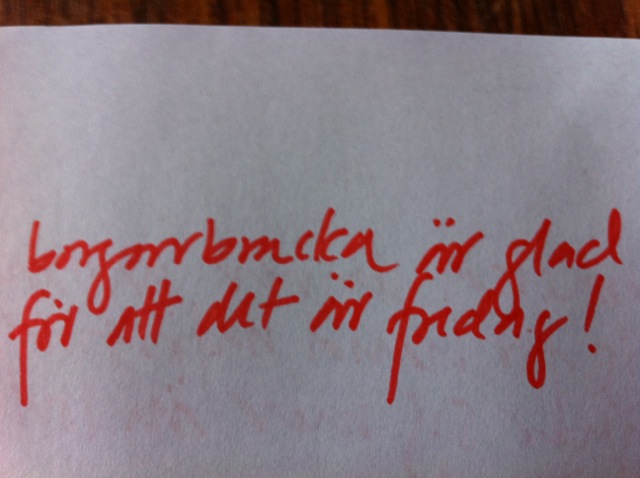 borgarbracka är glad
för att det är fredag!